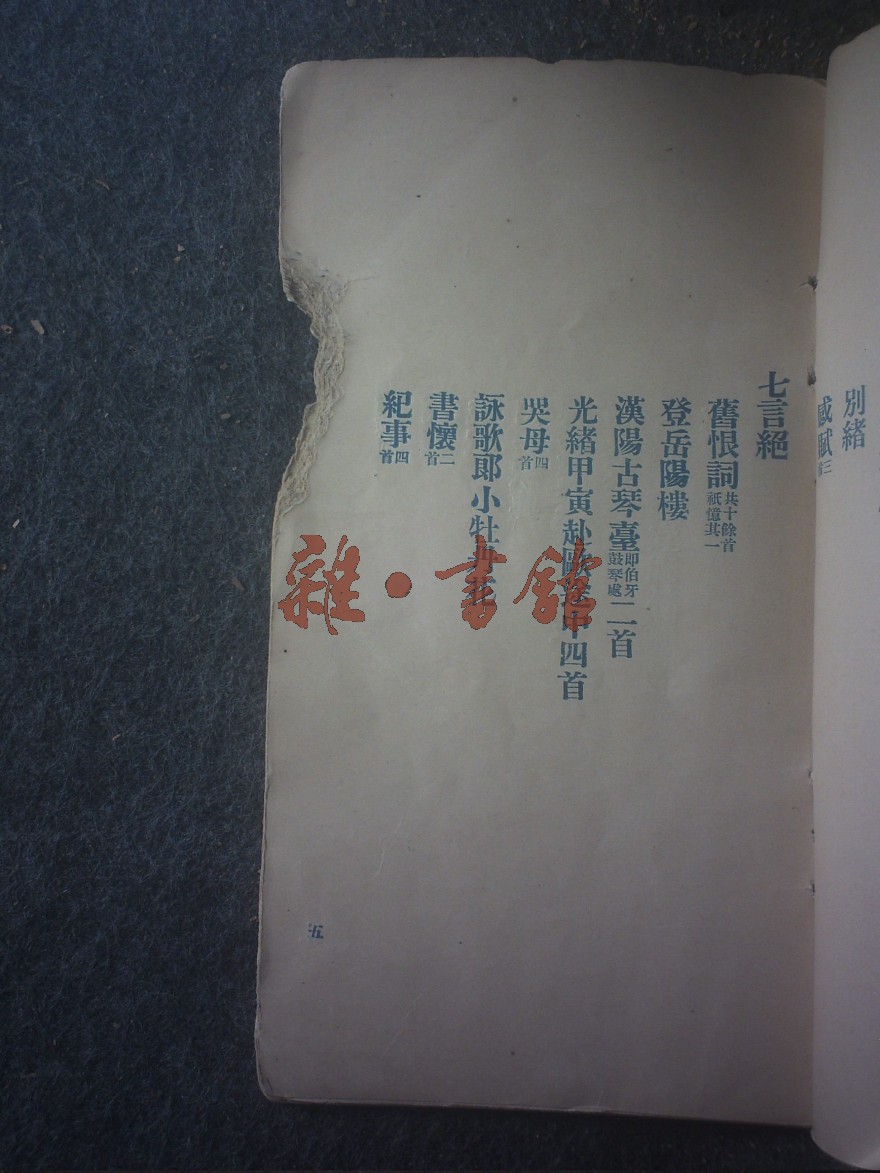 別緒
感賦三首
七言絕
舊恨詞共十餘首祇憶其一
登岳陽樓
漢陽古琴臺即伯牙鼓琴處二首
光緒甲寅赴歐途中四首
哭母四首
詠歌郎小牡丹花
書懷二首
紀事四首
五
雜·書館